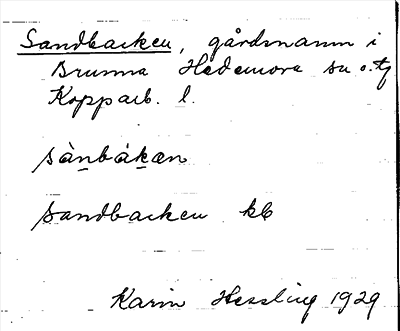 Sandbacken, gårdnamn i
Brunna Hedemora sn o. tg
Kopparb. l.
sànbákæn
sandbacken kb
Karin Hessling 1929